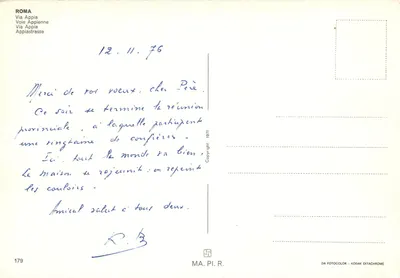 ROMA
Via Appia
Voie Appienne
Via Appia
Appiastrasse
12.11.76
Merci de vos voeux, cher Père.
Ce soir se termine la réunion
provinciale, à laquelle participent
une vingtaine de confrères.
Ici, tout le monde va bien.
La maison se rajeunit, on repeint
les couloirs.
Amical salut à tous deux.
Copyright
179
MA. PI. R.